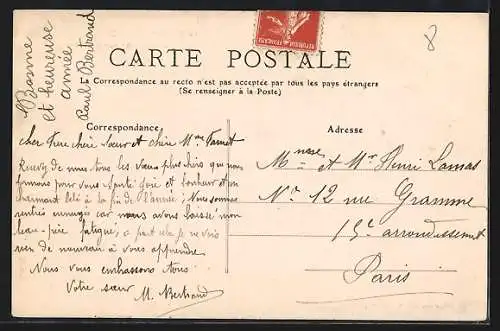 Bonne
et heureuse
année
Paul Bertrand
8
CARTE POSTALE
La Correspondance au recto n'est pas acceptée par tous les pays étrangers
(Se renseigner à la Poste)
Correspondance
cher frère chère Sœur et chère Mme
Recevez de nous tous les vœux plus chers que nous
formons pour vous santé joie et bonheur et un
charmant délà à la fin de l'année; Nous sommes
rentrés ennuyés car nous avons laissé mon
beau-père fatigué, à part cela je ne vois
rien de nouveau à vous apprendre.
Nous vous embrassons tous.
Votre sœur
M. Bertrand
Adresse
et Mr Henri Lamas
No 12 rue Gramme
15e arrondissement
Paris